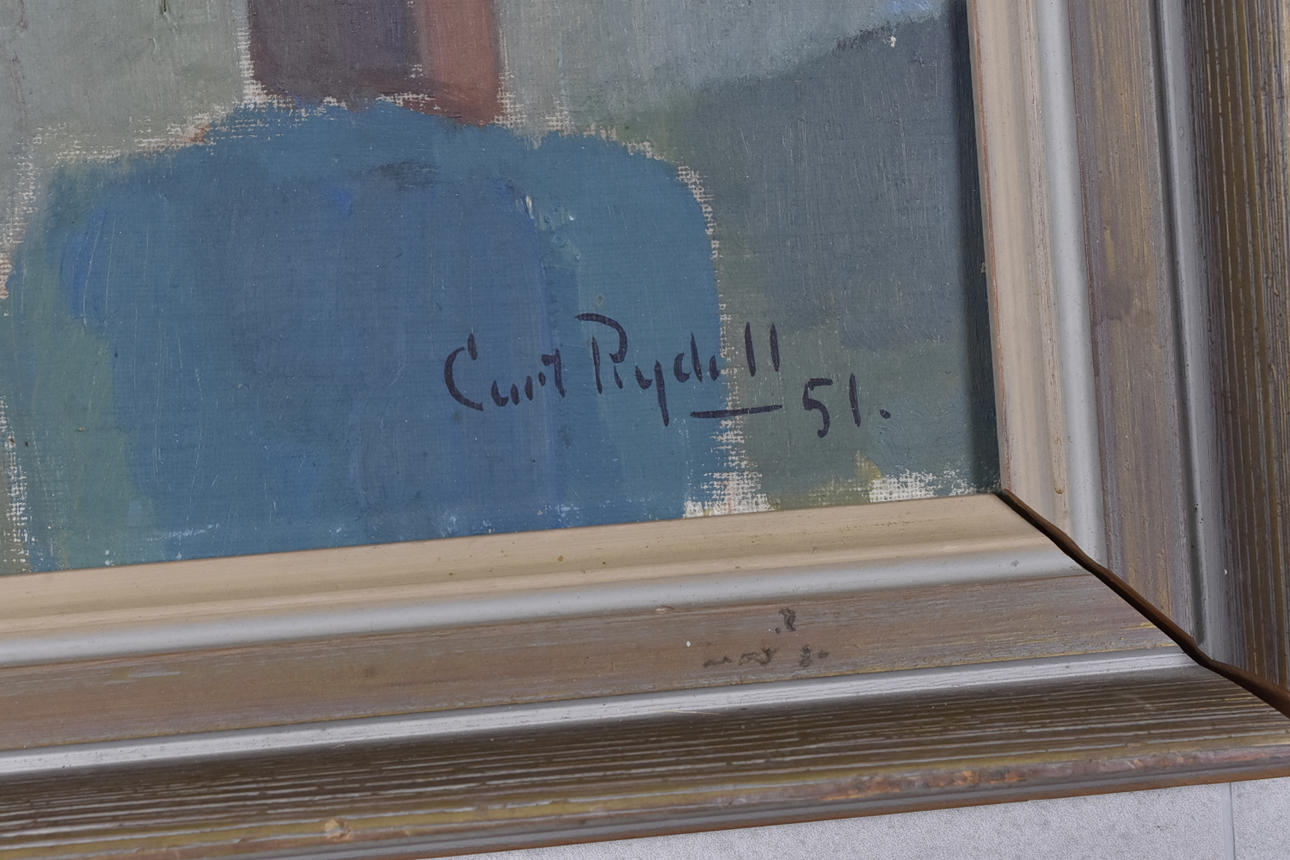 Curt Rydell
51.